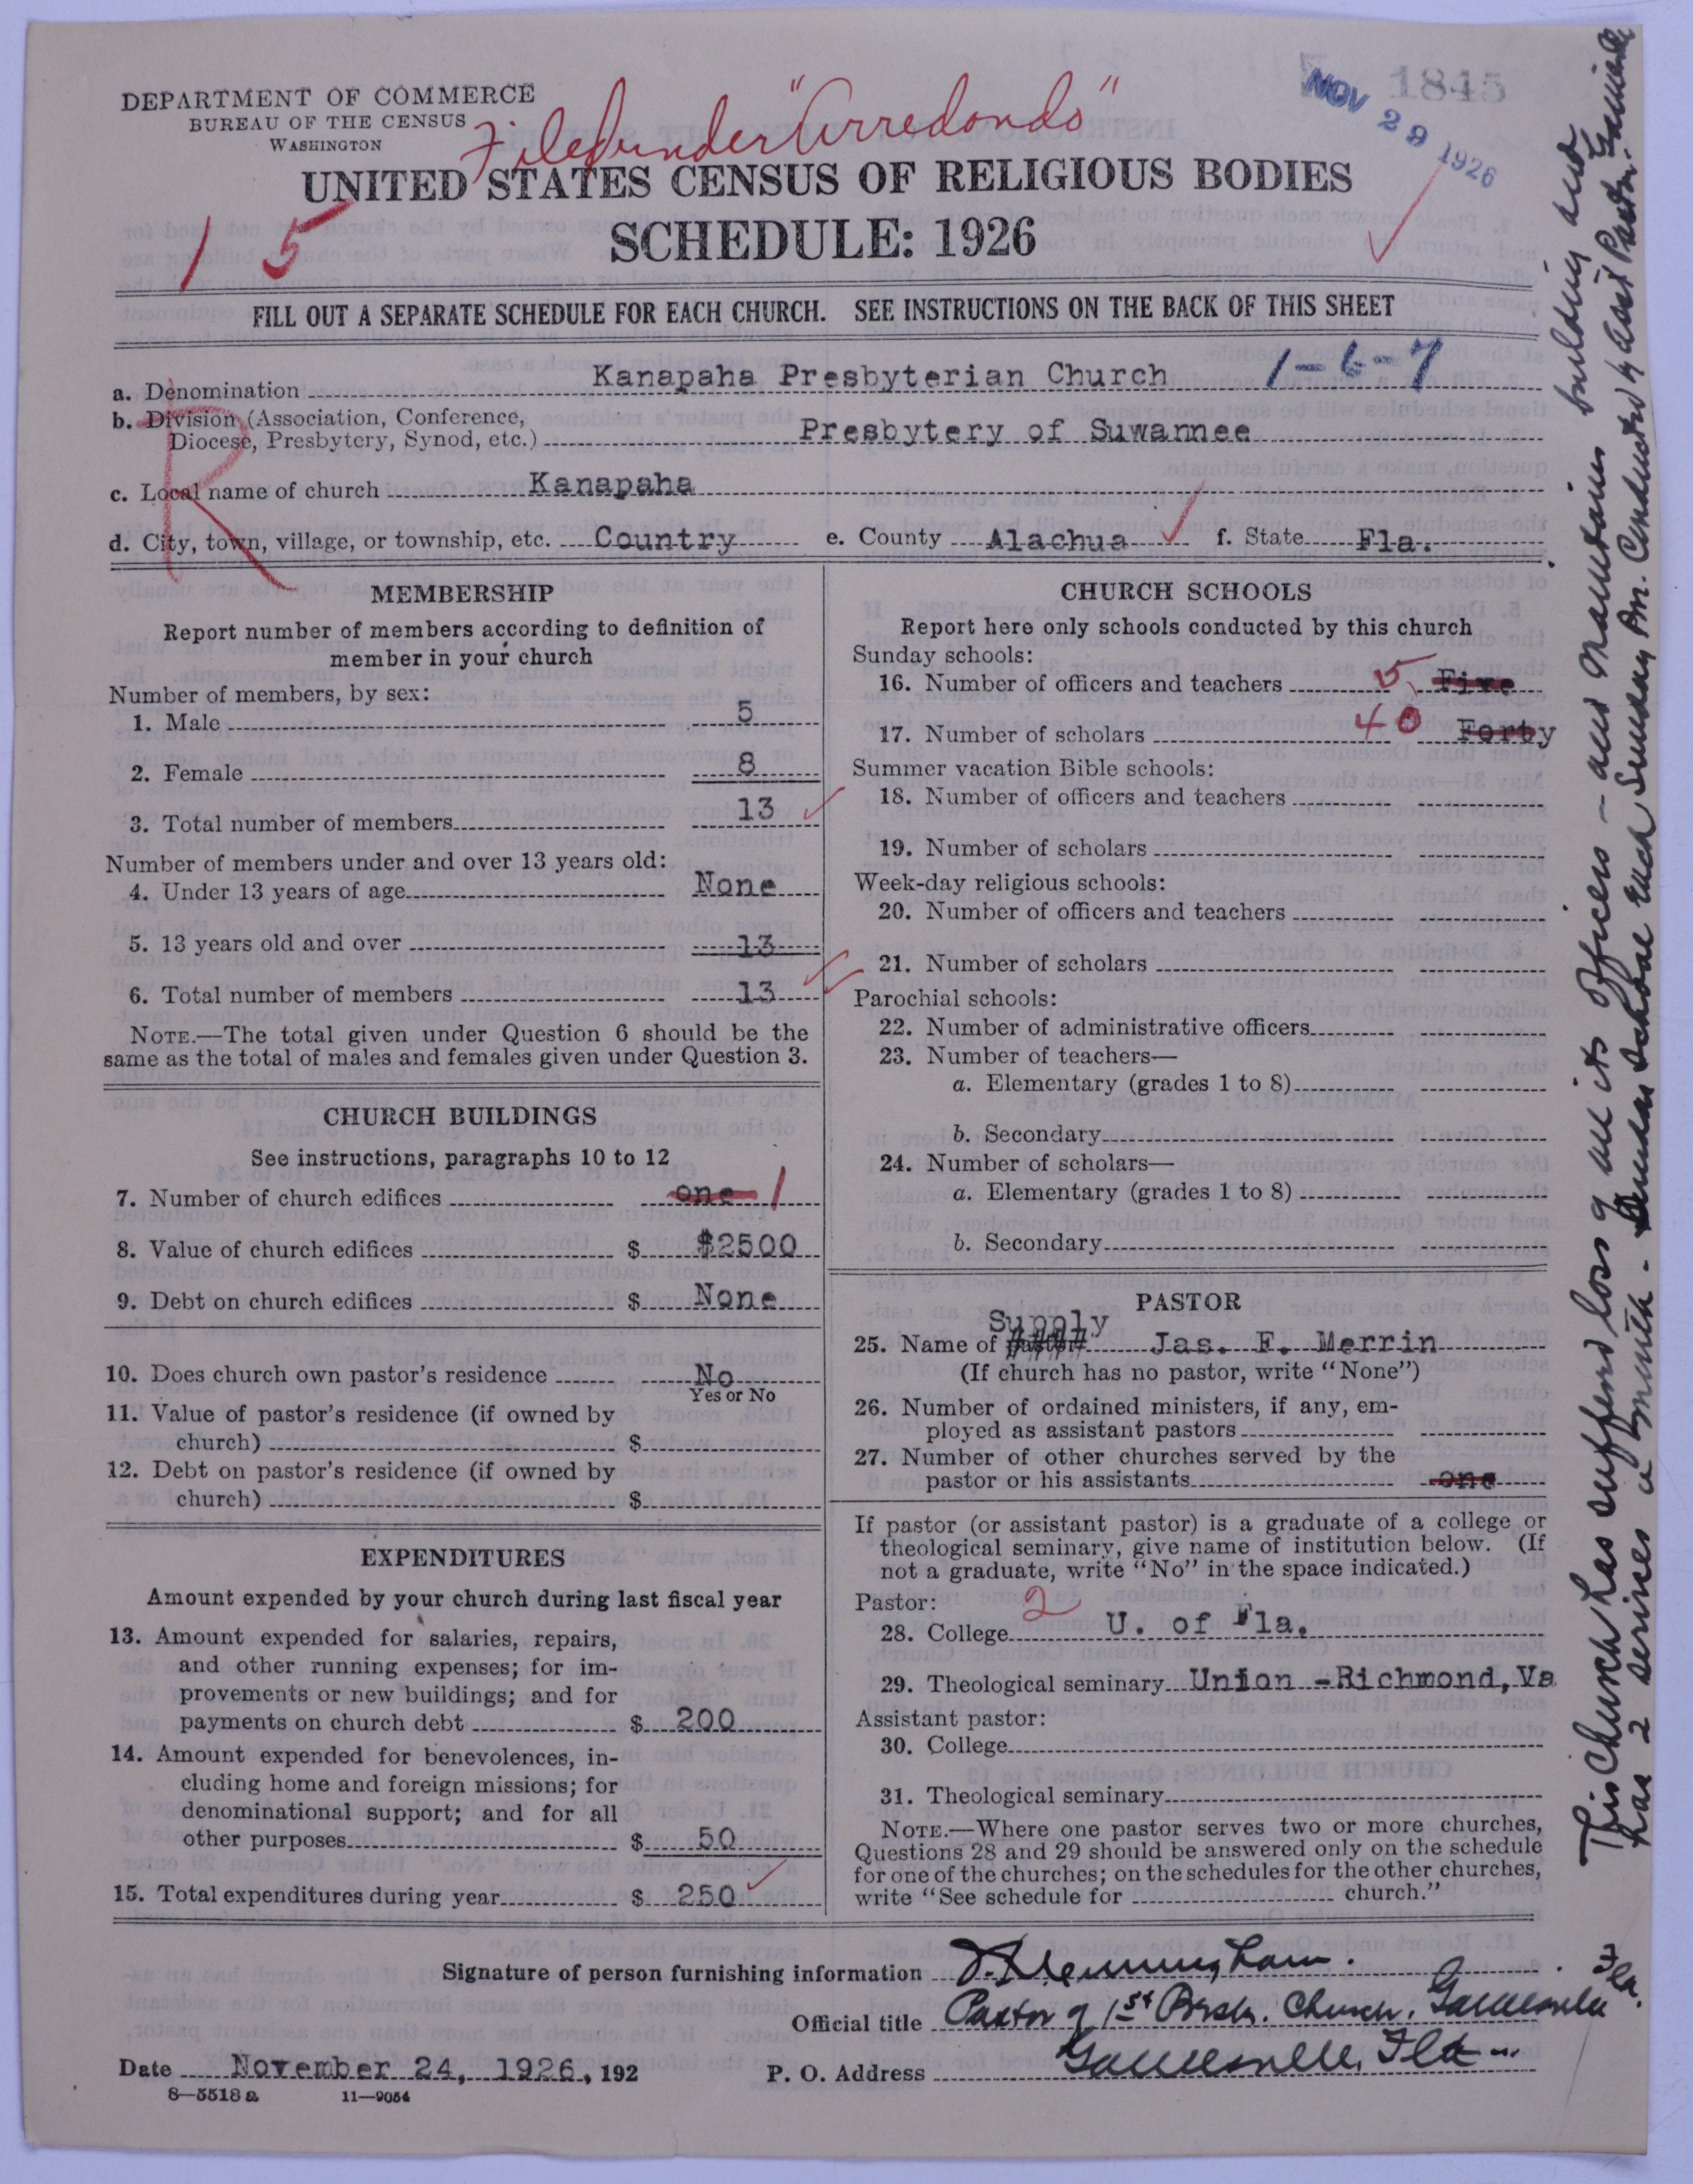 1845
NOV 29 1926
DEPARTMENT OF COMMERCE
BUREAU OF THE CENSUS
WASHINGTON
File under "Arredondo"
UNITED STATES CENSUS OF RELIGIOUS BODIES
15
SCHEDULE: 1926
FILL OUT A SEPARATE SCHEDULE FOR EACH CHURCH. SEE INSTRUCTIONS ON THE BACK OF THIS SHEET
a. Denomination Kanapaha Presbyterian Church 1-6-7
b. Division (Association, Conference,
Diocese, Presbytery, Synod, etc.) Presbytery of Suwannee
R
c. Local name of church Kanapaha
d. City, town, village, or township, etc. Country e. County Alachua f. State Fla.
MEMBERSHIP
Report number of members according to definition of
member in your church
Number of members, by sex:
1. Male 5
2. Female 8
3. Total number of members 13
Number of members under and over 13 years old:
4. Under 13 years of age None
5. 13 years old and over 13
6. Total number of members 13
NOTE.—The total given under Question 6 should be the
same as the total of males and females given under Question 3.
CHURCH BUILDINGS
See instructions, paragraphs 10 to 12
7. Number of church edifices one 1
8. Value of church edifices $ $2500
9. Debt on church edifices $ None
10. Does church own pastor's residence No
Yes or No
11. Value of pastor's residence (if owned by
church) $
12. Debt on pastor's residence (if owned by
church) $
EXPENDITURES
Amount expended by your church during last fiscal year
13. Amount expended for salaries, repairs,
and other running expenses; for im-
provements or new buildings; and for
payments on church debt $ 200
14. Amount expended for benevolences, in-
cluding home and foreign missions; for
denominational support; and for all
other purposes $ 50
15. Total expenditures during year $ 250
CHURCH SCHOOLS
Report here only schools conducted by this church
Sunday schools:
16. Number of officers and teachers 5 Five
17. Number of scholars 40 Forty
Summer vacation Bible schools:
18. Number of officers and teachers
19. Number of scholars
Week-day religious schools:
20. Number of officers and teachers
21. Number of scholars
Parochial schools:
22. Number of administrative officers
23. Number of teachers—
a. Elementary (grades 1 to 8)
b. Secondary
24. Number of scholars—
a. Elementary (grades 1 to 8)
b. Secondary
PASTOR
Supply
25. Name of pastor Jas. F. Merrin
(If church has no pastor, write "None")
26. Number of ordained ministers, if any, em-
ployed as assistant pastors
27. Number of other churches served by the
pastor or his assistants one
If pastor (or assistant pastor) is a graduate of a college or
theological seminary, give name of institution below. (If
not a graduate, write "No" in the space indicated.)
Pastor: 2
28. College U. of Fla.
29. Theological seminary Union -Richmond,Va
Assistant pastor:
30. College
31. Theological seminary
NOTE.—Where one pastor serves two or more churches,
Questions 28 and 29 should be answered only on the schedule
for one of the churches; on the schedules for the other churches,
write "See schedule for church."
Signature of person furnishing information
Official title Pastor of 1st Presb. Church, Gainesville Fla.
Date November 24, 1926, 192 P. O. Address Gainesville, Fla
8—5518 a 11—9054
This Church has suffered loss of all its officers - and maintains building and
has 2 services a month - Sunday School each Sunday P.M. Conducted by asst Pastor. Gainesville